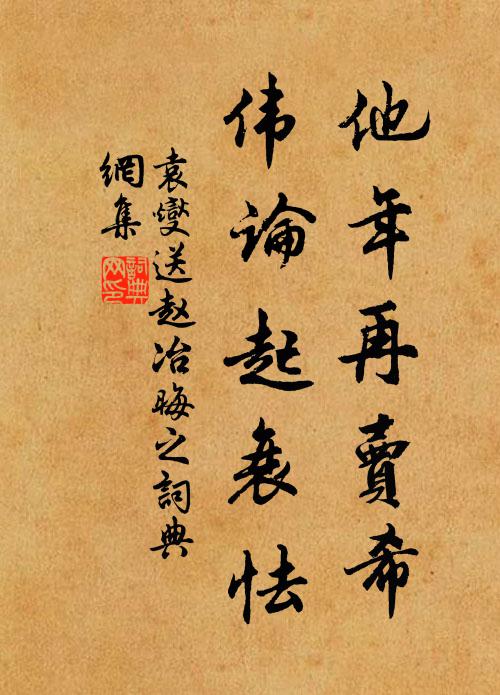 他年再賣希
伟論起衰怯
袁燮送赵冶晦之詞典
網集
詞典网印